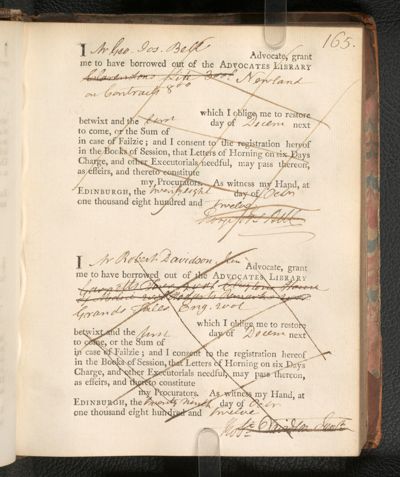 165.
I Mr Geo. Jos. Bell Advocate, grant
me to have borrowed out of the ADVOCATES LIBRARY
Clarendons Life Newland
on Contracts 8vo
which I oblige me to restore
betwixt and the first day of Decem next
to come, or the Sum of
in case of Failzie; and I consent to the registration hereof
in the Books of Session, that Letters of Horning on six Days
Charge, and other Executorials needful, may pass thereon,
as effeirs, and thereto constitute
my Procurators. As witness my Hand, at
EDINBURGH, the twenty eight day of
one thousand eight hundred and twelve
Bell
I Mr Robert Davidson Advocate, grant
me to have borrowed out of the ADVOCATES LIBRARY
Grands Tales Eng. 2 vol
which I oblige me to restore
betwixt and the first day of Decem next
to come, or the Sum of
in case of Failzie; and I consent to the registration hereof
in the Books of Session, that Letters of Horning on six Days
Charge, and other Executorials needful, may pass thereon,
as effeirs, and thereto constitute
my Procurators. As witness my Hand, at
EDINBURGH, the twenty ninth day of
one thousand eight hundred and twelve
Davidson